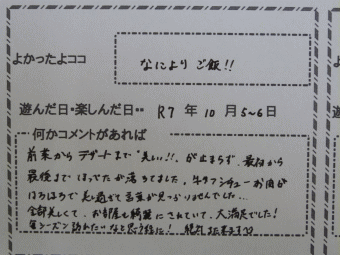 よかったよココ
なにより ご飯!!
遊んだ日・楽しんだ日・・ R7 年 10 月 5~6 日
何かコメントがあれば
前菜から デザートまで "美しい!!" が止まらず、最初から
最後まで ほっぺたが落ちてました。牛タンシチュー お肉が
ほろほろで 美し過ぎて言葉が見つかりませんでした…
全部美しくて、お部屋も綺麗にされていて、大満足でした!
シーズン 訪れたいなと思う程に!